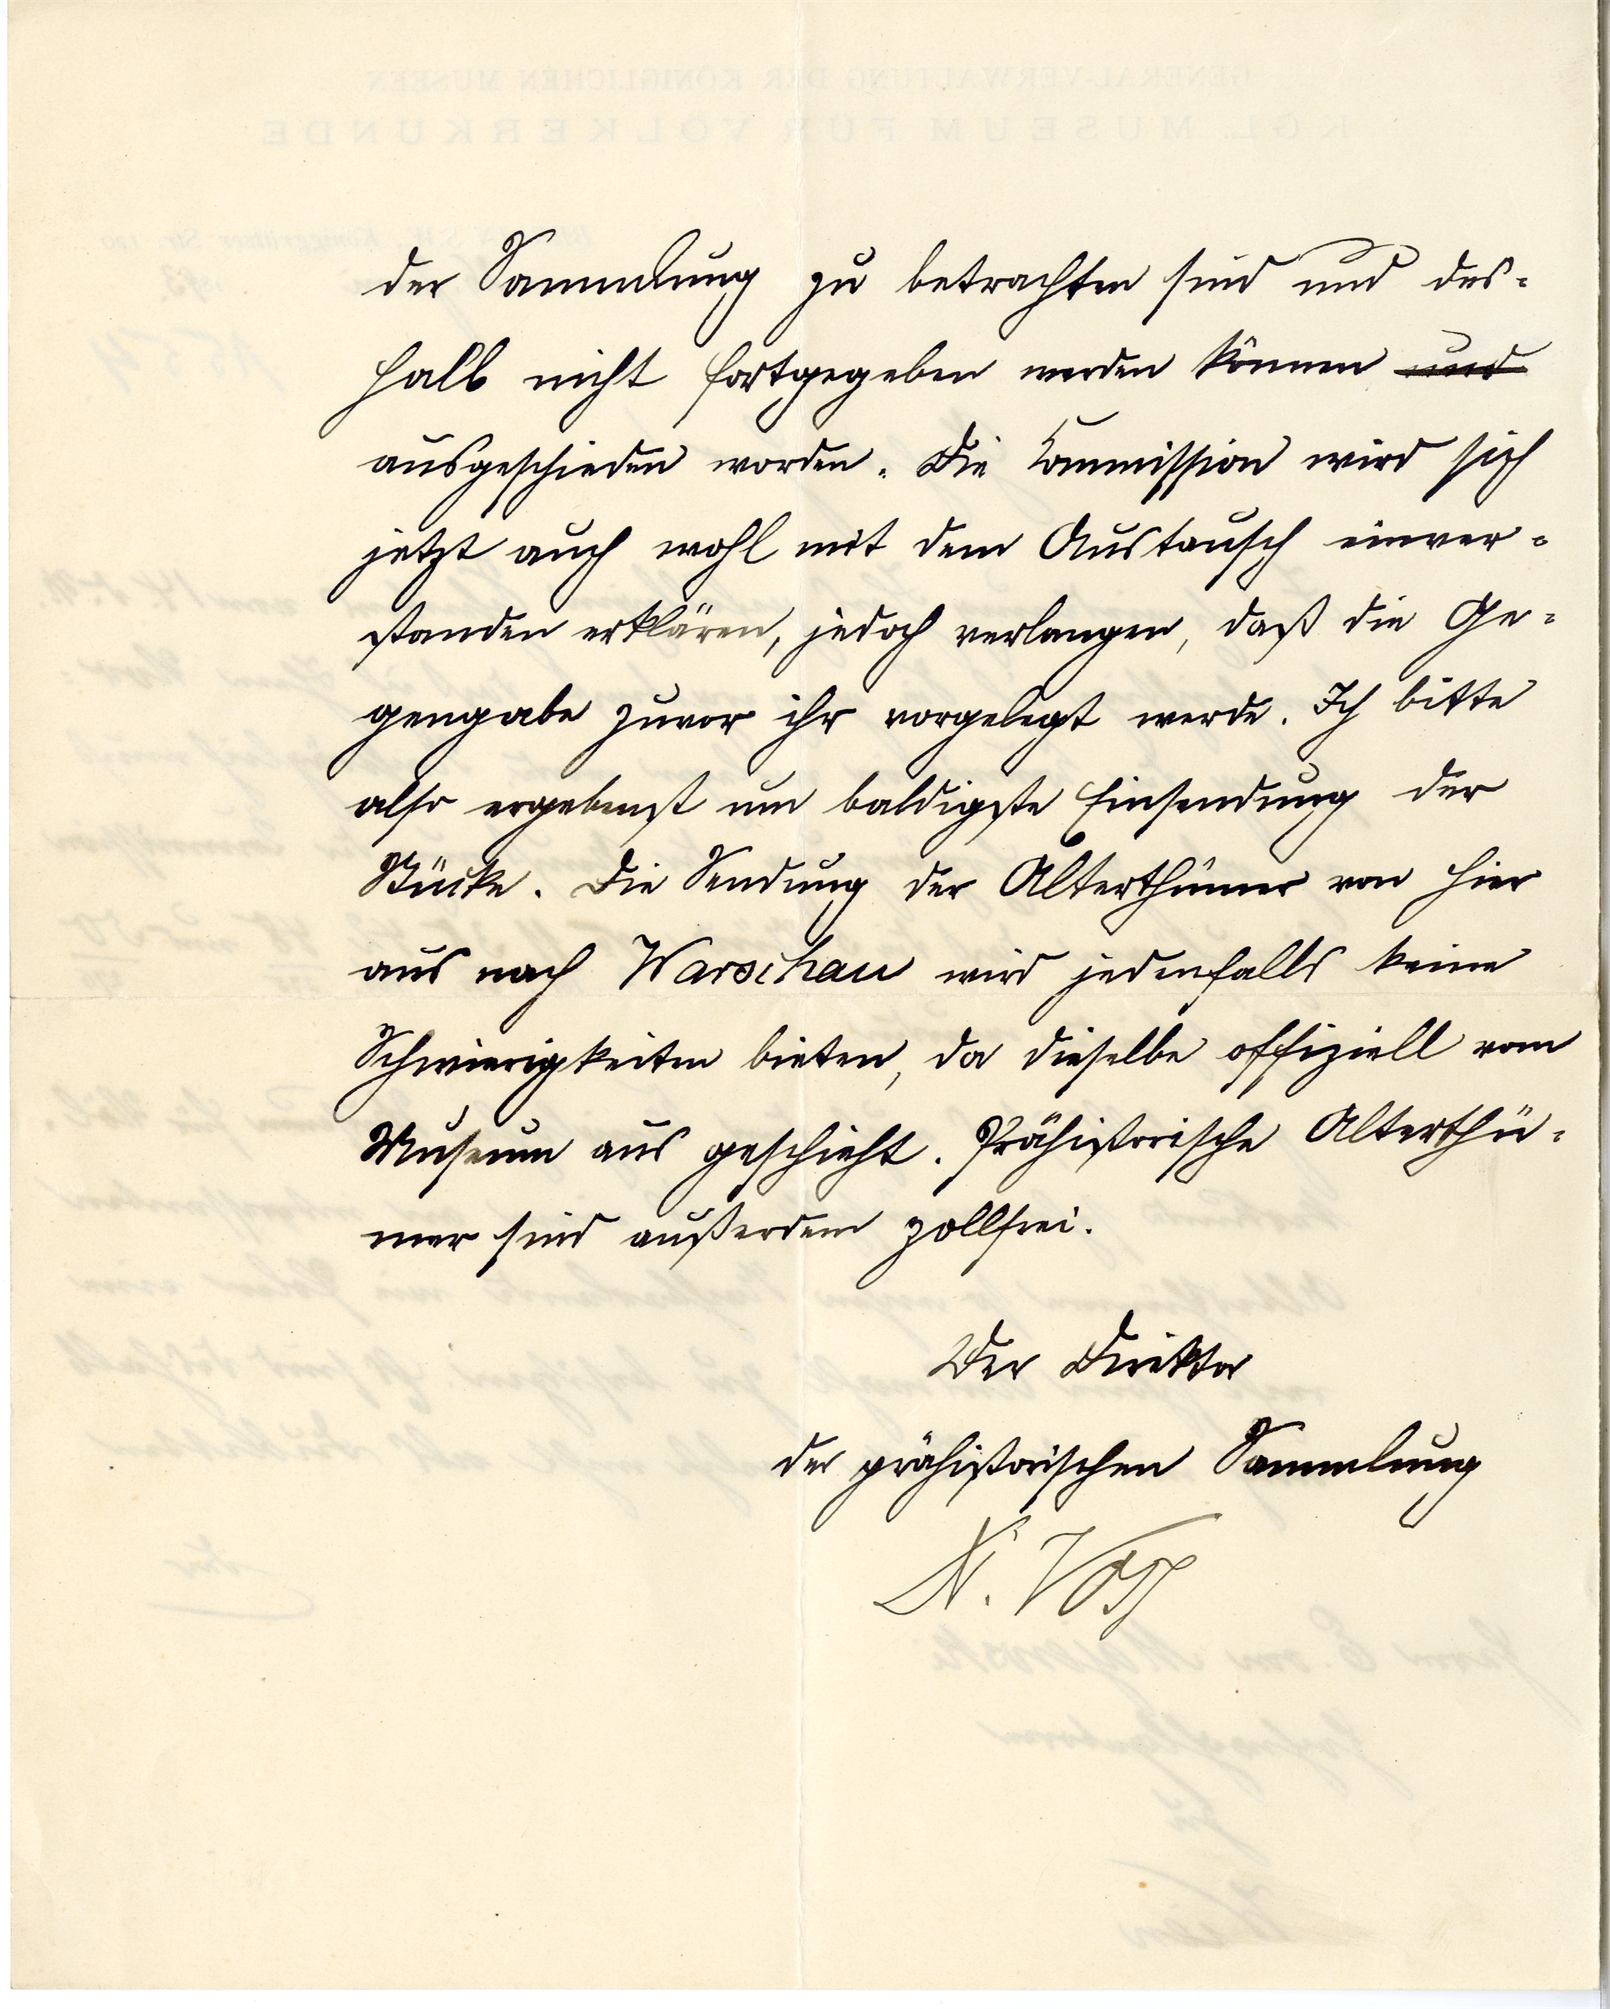 der Sammlung zu betrachten sind und des=
halb nicht fortgegeben werden können und
ausgeschieden worden. Die Commission wird sich
jetzt auch wohl mit dem Austausch einver=
standen erklären, jedoch verlangen, daß die Ge=
gengabe zuvor ihr vorgelegt werde. Ich bitte
also ergebenst um baldigste Einsendung der
Stücke. Die Sendung der Alterthümer von hier
aus nach Warschau wird jedenfalls keine
Schwierigkeiten bieten, da dieselbe offiziell vom
Museum aus geschieht. Prähistorische Alterthü=
mer sind außerdem zollfrei.
Der Direktor
der prähistorischen Sammlung
A. Voß